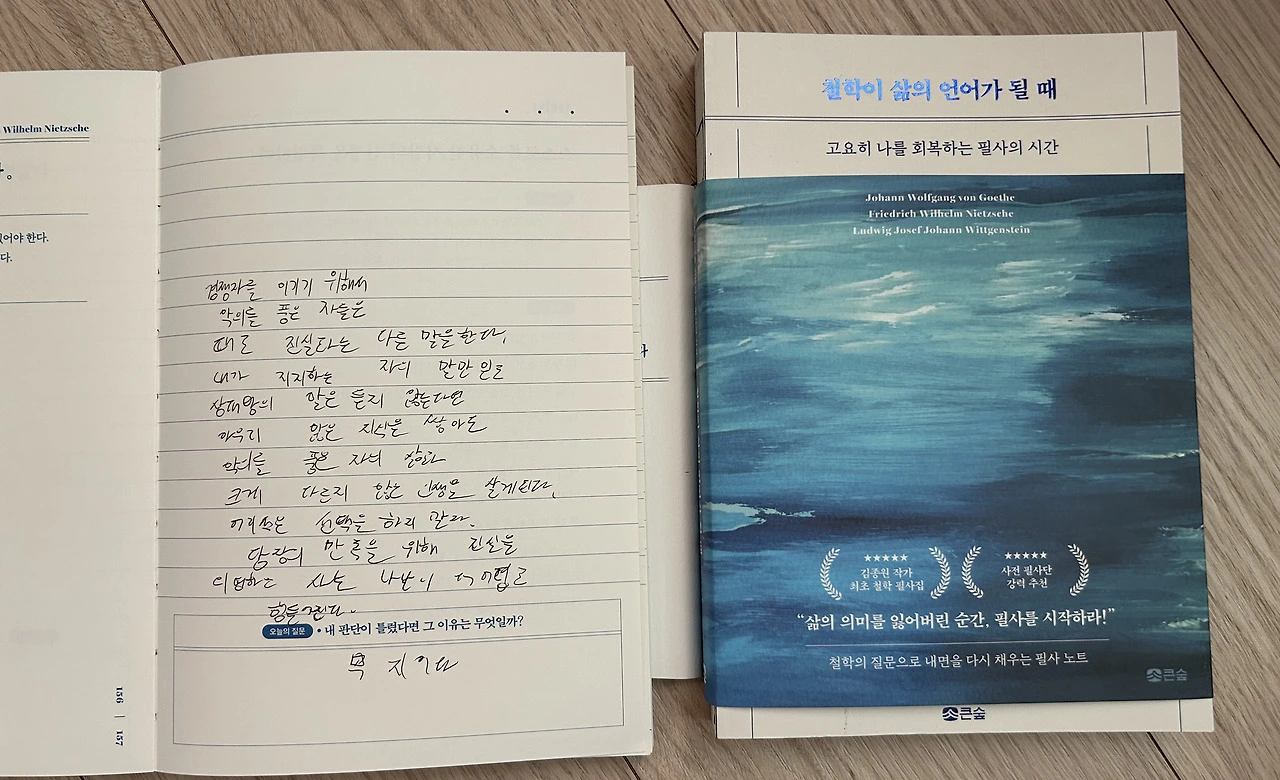 Wilhelm Nietzsche
다.
있어야 한다.
다.
경쟁자를 이기기 위해서
악의를 품은 자들은
때로 진실과는 다른 말을한다.
내가 지지하는 자의 말만 믿고
상대방의 말은 듣지 않는다면
아무리 많은 지식을 쌓아도
악의를 품은 자의 삶과
크게 다르지 않은 인생을 살게된다.
어리석은 선택을 하지 말라.
당장의 만족을 위해 진실을
외면하고 사는 나날이
힘두게된다.
오늘의 질문 • 내 판단이 틀렸다면 그 이유는 무엇일까?
무지이다
156 | 157
철학이 삶의 언어가 될 때
고요히 나를 회복하는 필사의 시간
Johann Wolfgang von Goethe
Friedrich Wilhelm Nietzsche
Ludwig Josef Johann Wittgenstein
김종원 작가
최초 철학 필사집
사전 필사단
강력 추천
“삶의 의미를 잃어버린 순간, 필사를 시작하라!”
철학의 질문으로 내면을 다시 채우는 필사 노트
큰숲
큰숲